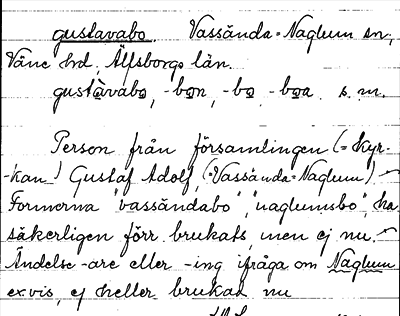 gustavabo. Vassända-Naglum sn,
Väne hd, Älfsborgs län.
gustàvabo̱, -bo̱n, -bo̱, -bo̱a. s. m.
Person från församlingen (= Kyr-
-kan) Gustaf Adolf, (Vassända-Naglum).
Formerna "vassändabo", "naglumsbo", ha
säkerligen förr brukats, men ej nu.
Ändelse -are eller -ing ifråga om Naglum
exvis, ej heller brukad nu